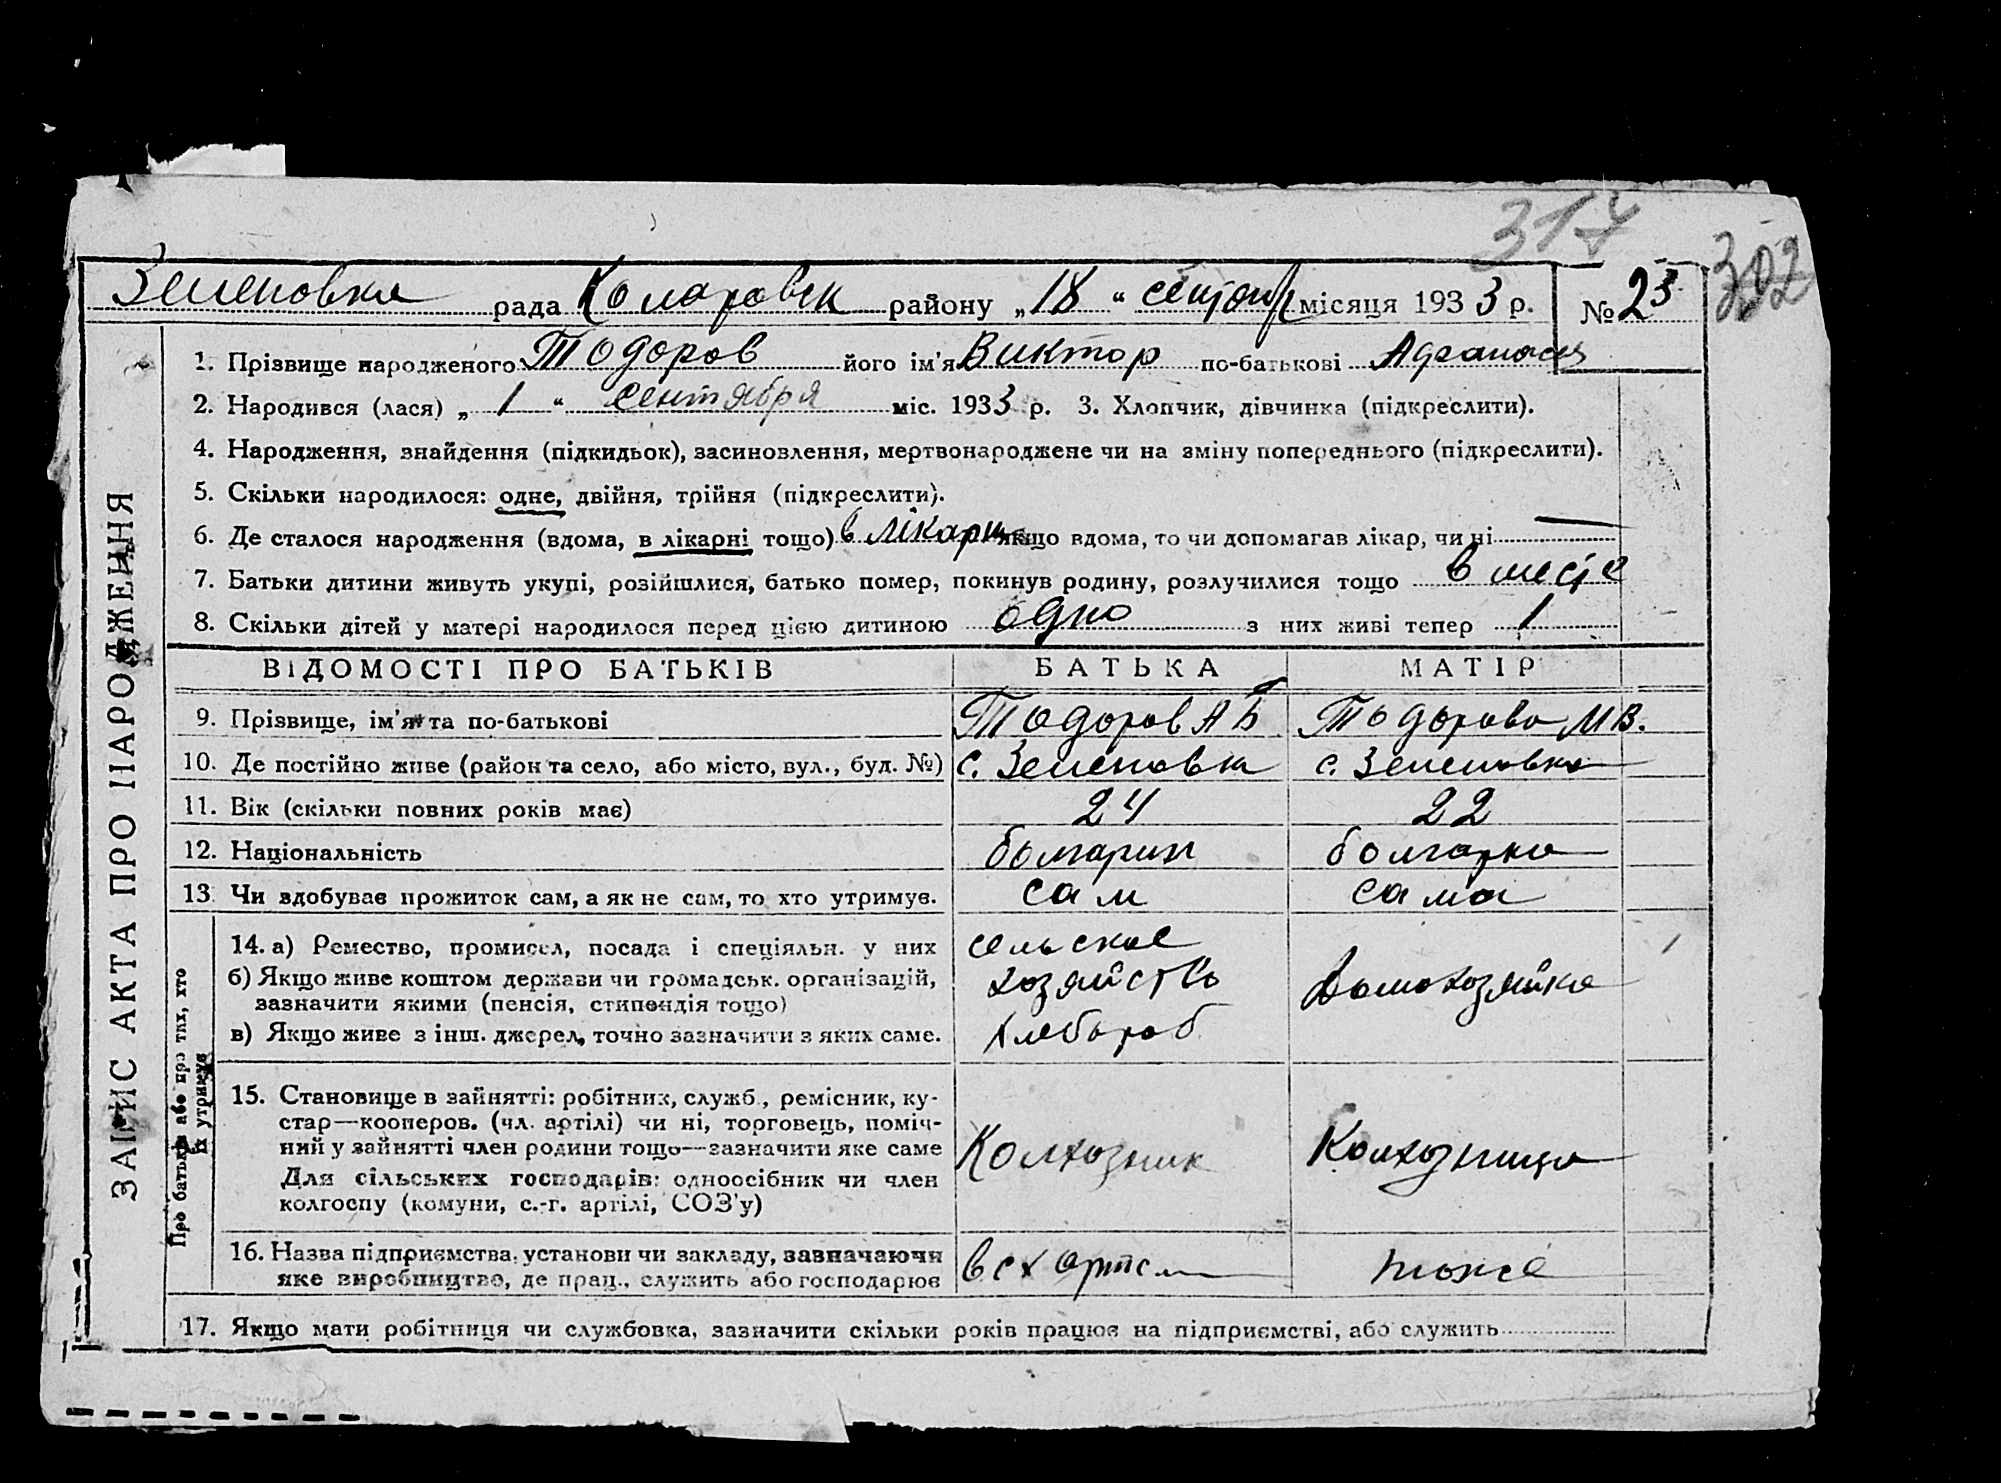 317
302
Зеленовка рада Коларовск району „18“ сентября місяця 1933 р. № 23
1. Прізвище народженого Тодоров його ім'я Виктор по-батькові
2. Народився (лася) „1“ сентября міс. 1933 р. 3. Хлопчик, дівчинка (підкреслити).
4. Народження, знайдення (підкидьок), засиновлення, мертвонароджене чи на зміну попереднього (підкреслити).
5. Скільки народилося: одне, двійня, трійня (підкреслити).
6. Де сталося народження (вдома, в лікарні тощо) в лікарні якщо вдома, то чи допомагав лікар, чи ні —
7. Батьки дитини живуть укупі, розійшлися, батько помер, покинув родину, розлучилися тощо в месте
8. Скільки дітей у матері народилося перед цією дитиною одно з них живі тепер 1
ЗАПИС АКТА ПРО НАРОДЖЕННЯ
ВІДОМОСТІ ПРО БАТЬКІВ БАТЬКА МАТІР
9. Прізвище, ім'я та по-батькові Тодоров А Б Тодорова М В.
10. Де постійно живе (район та село, або місто, вул., буд. №) с. Зеленовка с. Зеленовка
11. Вік (скільки повних років має) 24 22
12. Національність болгарин болгарка
13. Чи здобуває прожиток сам, а як не сам, то хто утримує. сам сама
Про батьків або про тих, хто
їх утримує
14. а) Ремество, промисел, посада і спеціяльн. у них сельское
б) Якщо живе коштом держави чи громадськ. організацій, хозяйство домохозяйка
зазначити якими (пенсія, стипендія тощо)
в) Якщо живе з інш. джерел, точно зазначити з яких саме. хлебороб
15. Становище в зайнятті: робітник, служб., ремісник, ку-
стар—кооперов. (чл. артілі) чи ні, торговець, поміч-
ний у зайнятті член родини тощо—зазначити яке саме Колхозник Колхозница
Для сільських господарів: одноосібник чи член
колгоспу (комуни, с.-г. артілі, СОЗ'у)
16. Назва підприємства, установи чи закладу, зазначаючи в с х артели тоже
яке виробництво, де прац., служить або господарює
17. Якщо мати робітниця чи службовка, зазначити скільки років працює на підприємстві, або служить